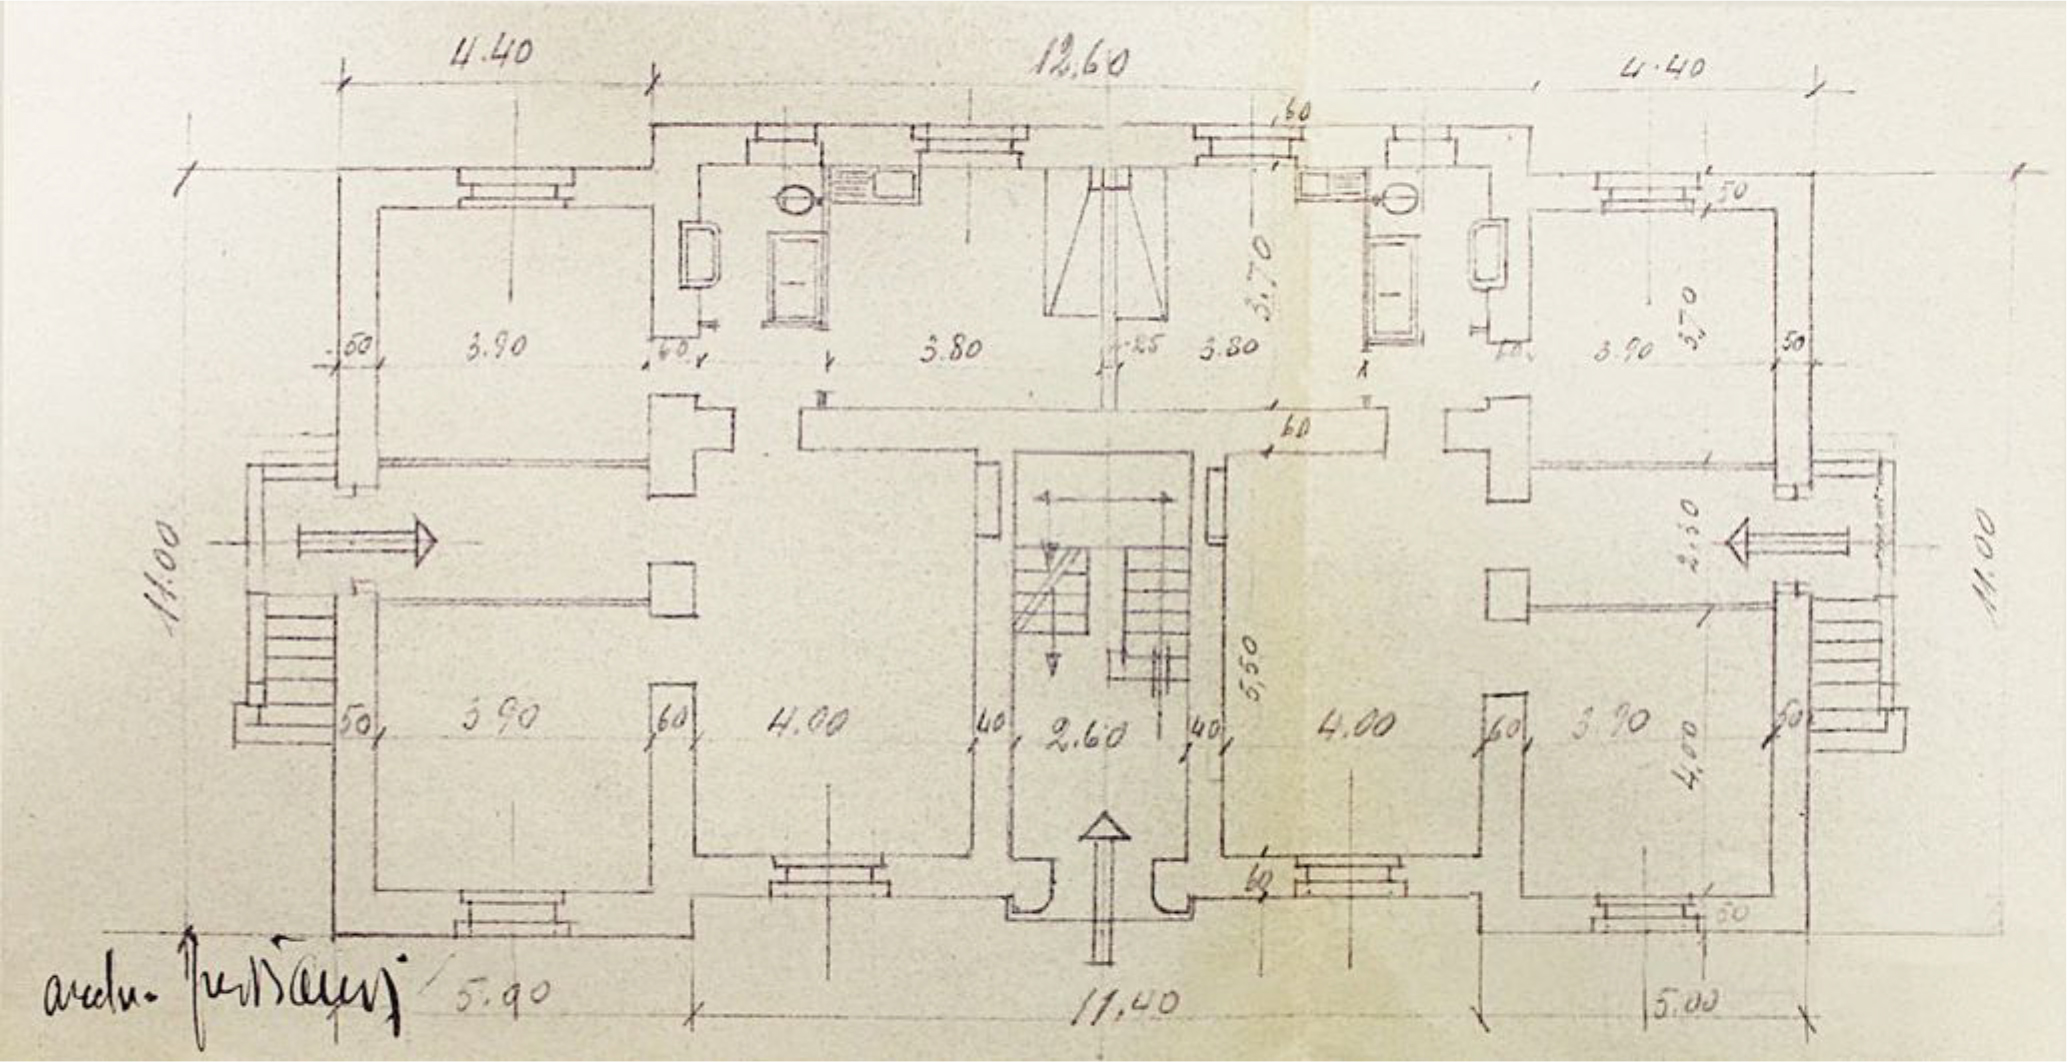 4.40
12.60
4.40
60
50
3.70
3.70
50
3.90
60
3.80
25
3.80
60
3.90
50
60
11.00
2.30
11.00
5,50
50
3.90
60
4.00
40
2.60
40
4.00
60
3.90
50
4,00
60
50
arch.
5.90
11.40
5.00